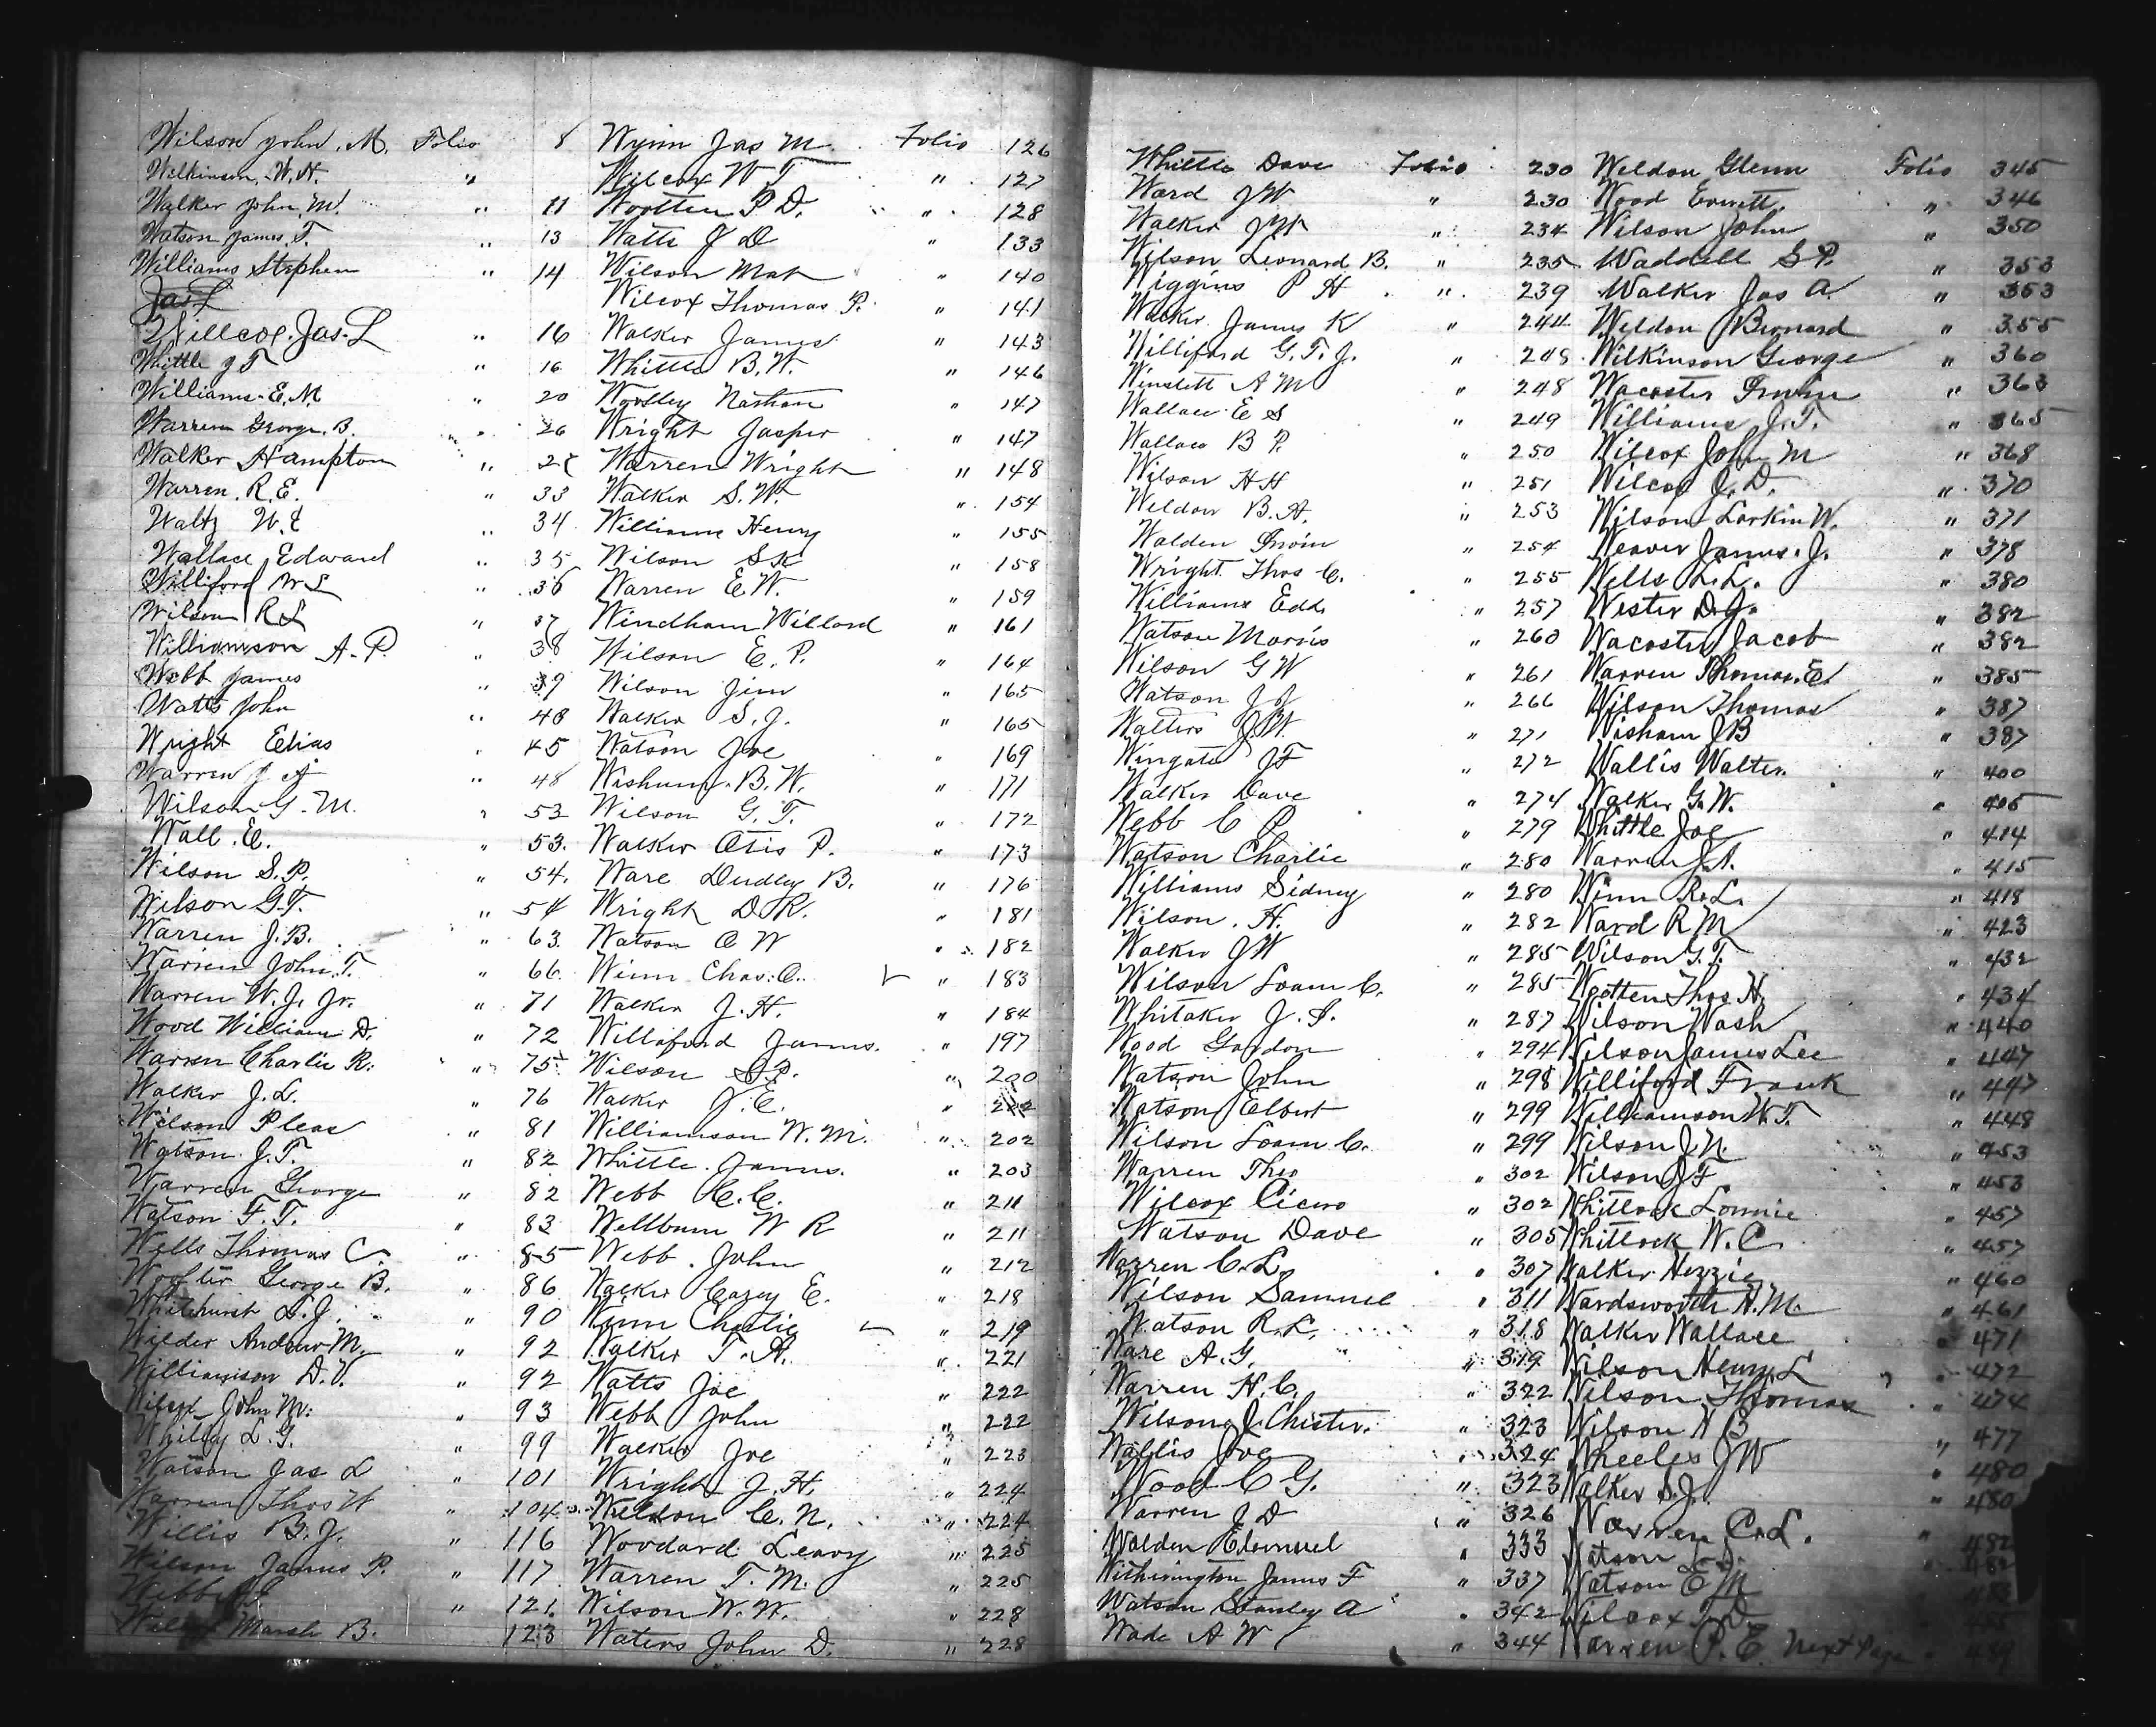 Wilson John. M. Folio 8
Wilkinson, W.H. "
Walker John, M. " 11
Watson James, T. " 13
Williams Stephen " 14
Jas L
Willcox. Jas. L " 16
Whittle J T " 16
Williams. E. M " 20
Warren George. B. " 26
Walker Hampton "
Warren. R. E. " 33
Waltz W. E " 34
Wallace Edward " 35
Williford W L " 36
Wilson R L " 37
Williamson A. P. " 38
Webb James " 39
Watts John " 40
Wright Elias " 45
Warren J A " 48
Wilson G. M. " 53
Wall. E. " 53.
Wilson S. P. " 54.
Wilson G. T. " 54
Warren J. B. " 63.
Warren John, T. " 66.
Warren W. J. Jr. " 71
Wood William D. " 72
Warren Charlie R. " 75
Walker J. L. " 76
Wilson Pleas " 81
Watson. J. T. " 82
Warren George " 82
Watson F. T. " 83
Wells Thomas C. " 85
Wooster George B. " 86
Whitehurst D. J. " 90
Wilder Andrew M. " 92
Williamson D. V. " 92
John M. " 93
L. G. " 99
Watson Jas L " 101
Warren Thos W " 104
Willis B. J. " 116
Wilson James P. " 117
Webb " 121.
Marsh B. 123
Wynn Jas M. Folio 126
Wilcox W T " 127
Wootten P D. " 128
Watts J D " 133
Wilson Mat " 140
Wilcox Thomas P. " 141
Walker James " 143
Whittle B. W. " 146
Woolley Nathan " 147
Wright Jasper " 147
Warren Wright " 148
Walker S. W. " 154
Williams Henry " 155
Wilson S K " 158
Warren E. W. " 159
Windham Willard " 161
Wilson E. P. " 164
Wilson Jim " 165
Walker S. J. " 165
Watson Joe " 169
Wishum. B. W. " 171
Wilson G. T. " 172
Walker Otis P. " 173
Ware Dudley B. " 176
Wright D. K. " 181
Watson O W " 182
Winn Chas. C. " 183
Walker J. H. " 184
Williford James. " 197
Wilson S. P. " 200
Walker J. E. "
Williamson W. M. " 202
Whittle. James. " 203
Webb C. C. " 211
Wellburn W R " 211
Webb. John " 212
Walker Casey E. " 218
Winn Charlie " 219
Walker T. A. " 221
Watts Joe " 222
Webb John " 222
Walker Joe " 223
Wright J. H. " 224
Weldon C. N. " 224
Woodard Leavy " 225
Warren T. M. " 225
Wilson W. W. " 228
Waters John D. " 228
Whittle Dave Folio 230
Ward J W " 230
Walker J W " 234
Wilson Leonard B. " 235
Wiggins P H " 239
Walker James K " 244
Williford G. T. J. " 248
Winslett A M " 248
Wallace E S " 249
Wallace B P. " 250
Wilson H H " 251
Weldon B. H. " 253
Walden Irwin " 254
Wright Thos C. " 255
Williams Edd, " 257
Watson Morris " 260
Wilson G W " 261
Watson J J " 266
Walters J. W. " 271
Wingate J F " 272
Walker Dave " 274
Webb C P " 279
Watson Charlie " 280
Williams Sidney " 280
Wilson. H. " 282
Walker J W " 285
Wilson Loam C. " 285
Whitaker J. S. " 287
Wood Gordon " 294
Watson John " 298
Watson Elbert " 299
Wilson Loam C. " 299
Warren Theo " 302
Wilcox Cicero " 302
Watson Dave " 305
Warren C. L. " 307
Wilson Samuel " 311
Watson R. L. " 318
Ware A. G. " 319
Warren H. C. " 322
Wilson J. Chester. " 323
Wallis Joe " 324
Wood C G. " 323
Warren J D " 326
Walden Elemuel " 333
Witherington James F " 337
Watson Stanley A " 342
Wade A W " 344
Weldon Glenn Folio 345
Wood Everett. " 346
Wilson John " 350
Waddell S P. " 353
Walker Jas A. " 353
Weldon Bernard " 355
Wilkinson George " 360
Wacaster Irwin " 363
Williams J. T. " 365
Wilcox John M " 368
Wilcox J. D. " 370
Wilson Larkin W. " 371
Weaver James. J. " 378
Wells L. L. " 380
Wester D. J. " 382
Wacaster Jacob " 382
Warren Thomas. E. " 385
Wilson Thomas " 387
Wisham J B " 387
Wallis Walter. " 400
Walker G. W. " 405
Whittle Joe " 414
Warren J. A. " 415
Winn R. L. " 418
Ward R M " 423
Wilson G. T. " 432
Wootten Thos. H. " 434
Wilson Wash " 440
Wilson James Lee " 447
Williford Frank " 447
Williamson W. T. " 448
Wilson J. N. " 453
Wilson J F " 453
Whitlock Lonnie " 457
Whitlock W. C. " 457
Walker Hezzie " 460
Wardsworth H. M. " 461
Walker Wallace " 471
Wilson Henry. L " 472
Wilson Thomas " 474
Wilson N B " 477
Wheeler J W " 480
Walker S. J. " 480
Warren C. L. " 482
Watson " 482
Watson E M
Wilcox
Warren P. E. Next Page